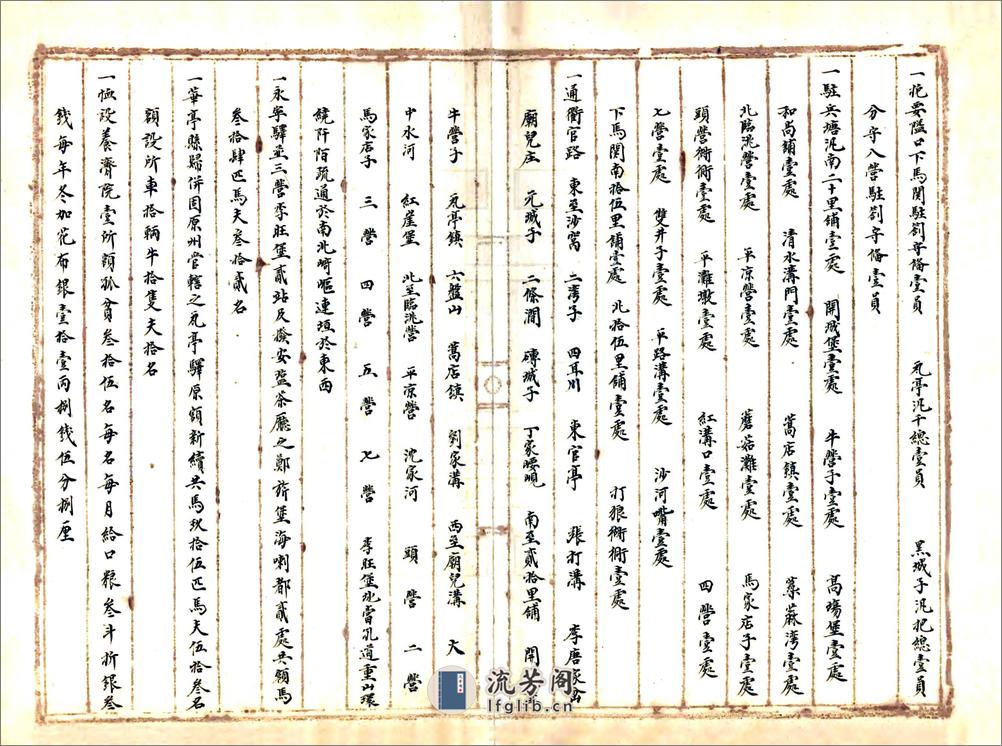 一扼要隘口下馬関駐劄守備壹員 瓦亭汛千總壹員 黑城子汛把總壹員
分守八營駐劄守備壹員
一駐兵塘汛南二十里鋪壹處 開城堡壹處 牛營子壹處 高塲堡壹處
和尚鋪壹處 清水溝門壹處 蒿店鎮壹處 蓁蔴湾壹處
北臨洮營壹處 平凉營壹處 蘑菇灘壹處 馬家店子壹處
頭營衚衕壹處 平灘墩壹處 紅溝口壹處 四營壹處
七營壹處 雙井子壹處 平路溝壹處 沙河嘴壹處
下馬関南拾伍里鋪壹處 北拾伍里鋪壹處 打狼衚衕壹處
一通衢官路 東至沙窩 二湾子 四耳川 東官亭 張打溝 李唐家岔
廟兒庄 元城子 二條澗 磚城子 丁家腰峴 南至貳拾里鋪 開
牛營子 瓦亭鎮 六盤山 蒿店鎮 劉家溝 西至廟兒溝 大
中水河 紅崖堡 北至臨洮營 平凉營 沈家河 頭營 二營
馬家店子 三營 四營 五營 七營 李旺堡北當孔道重山環
繞阡陌疏通於南北崎嶇連項於東西
一永寧驛並三營李旺堡貳站及撥安盈茶廳之鄭旂堡海喇都貳處共領馬
叁拾肆匹馬夫叁拾貳名
一華亭縣歸併固原州管轄之瓦亭驛原額新續共馬玖拾伍匹馬夫伍拾叁名
額設所車拾輛牛拾隻夫拾名
一恤設養濟院壹所額孤貧叁拾伍名每名每月給口粮叁斗折銀叁
錢每年冬加花布銀壹拾壹两捌錢伍分捌厘
流芳阁
lfglib.cn